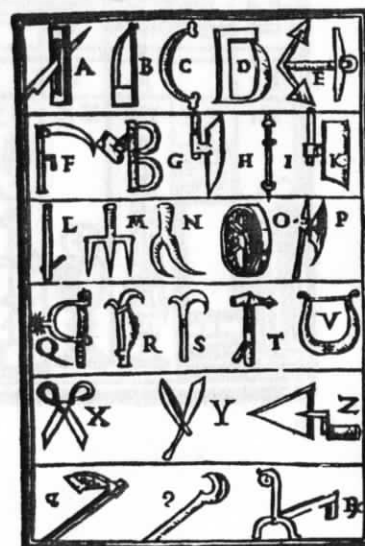 A B C D E
F G H I K
L M N O P
R S T V
X Y Z